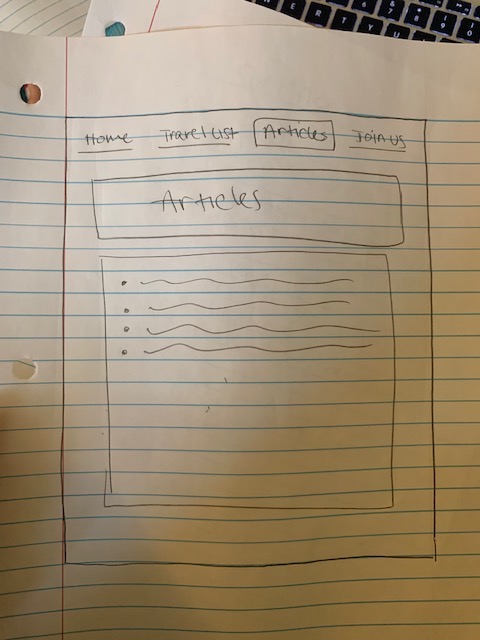 Home Travel List Articles Join Us
Articles